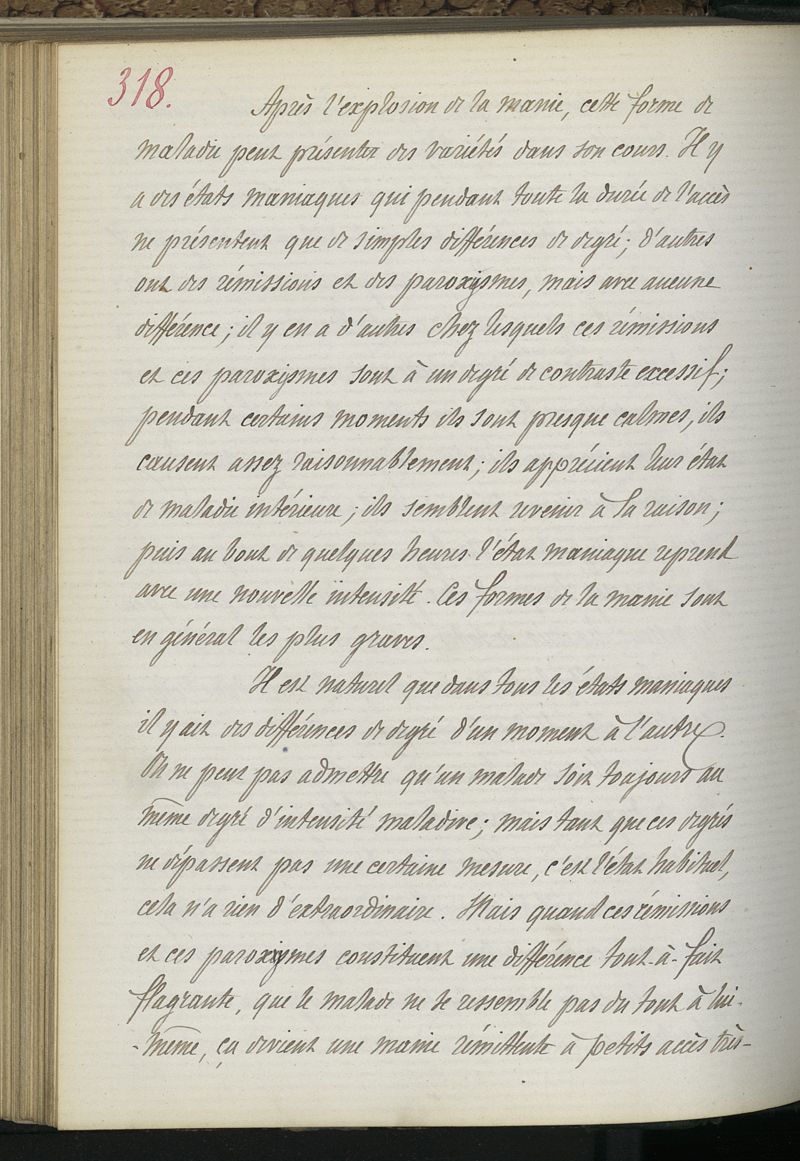 318.
Après l'explosion de la manie, cette forme de
maladie peut présenter des variétés dans son cours. Il y
a des états maniaques qui pendant toute la durée de l'accès
ne présentent que de simples différences de degré; d'autres
ont des rémissions et des paroxysmes, mais avec aucune
différence; il y en a d'autres chez lesquels ces rémissions
et ces paroxysmes sont à un degré de contraste excessif;
pendant certains moments ils sont presque calmes, ils
causent assez raisonnablement; ils apprécient leur état
de maladie intérieure; ils semblent revenir à la raison;
puis au bout de quelques heures l'état maniaque reprend
avec une nouvelle intensité. Ces formes de la manie sont
en général les plus graves.
Il est naturel que dans tous les états maniaques
il y ait des différences de degré d'un moment à l'autre.
On ne peut pas admettre qu'un malade soit toujours au
même degré d'intensité maladive; mais tant que ces degrés
ne dépassent pas une certaine mesure, c'est l'état habituel,
cela n'a rien d'extraordinaire. Mais quand ces rémissions
et ces paroxysmes constituent une différence tout-à-fait
flagrante, que le malade ne se ressemble pas du tout à lui-
-même, ça devient une manie rémittente à petits accès très-